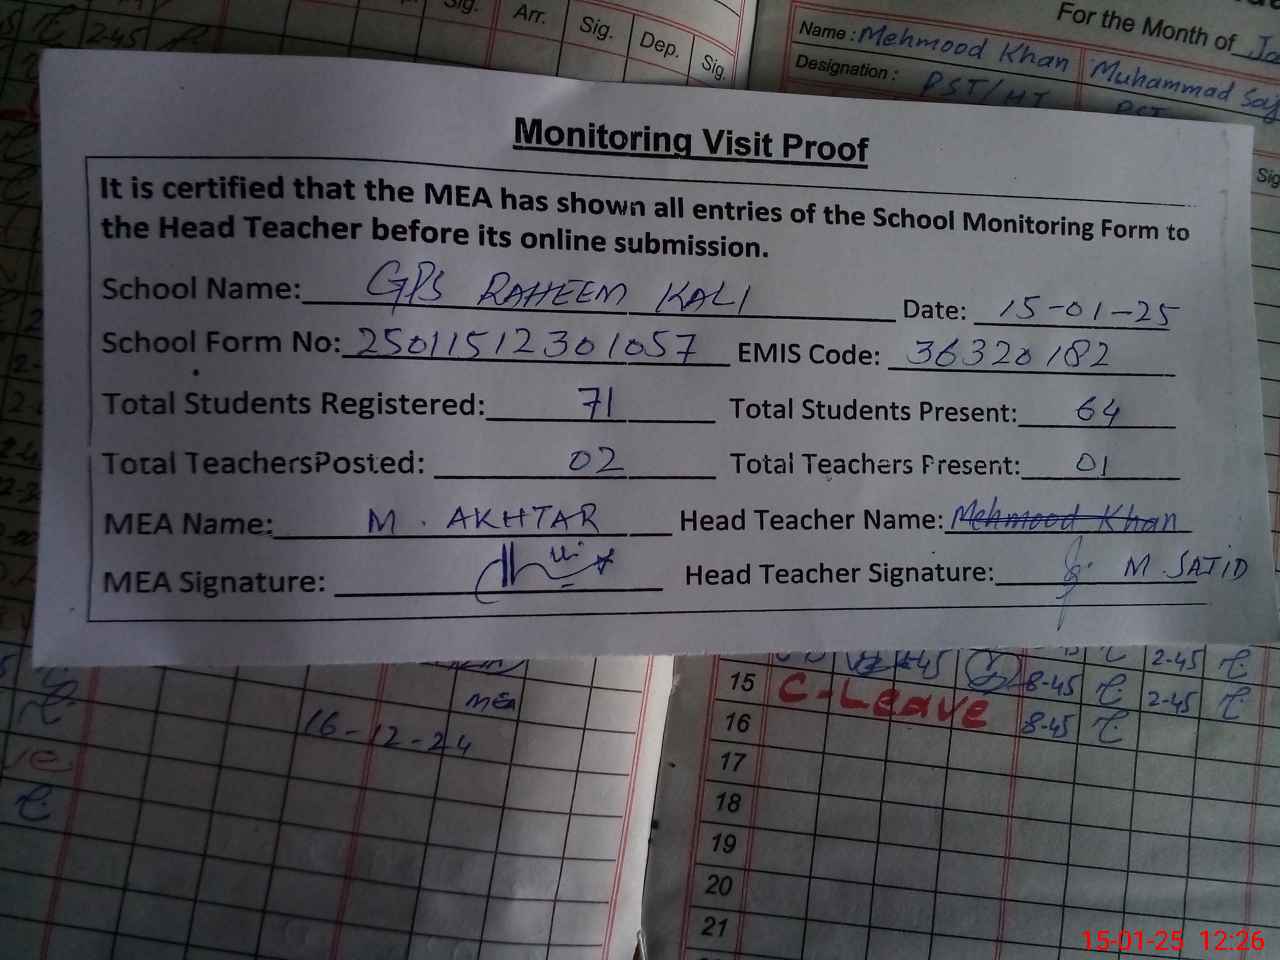 Sig.
Arr.
Sig.
Dep.
Sig.
For the Month of
Name : Mehmood Khan
Muhammad
Designation : PST/HT
PST
2-45
Monitoring Visit Proof
It is certified that the MEA has shown all entries of the School Monitoring Form to
the Head Teacher before its online submission.
School Name: GPS RAHEEM KALI Date: 15-01-25
School Form No: 25011512301057 EMIS Code: 36320182
Total Students Registered: 71 Total Students Present: 64
Total TeachersPosted: 02 Total Teachers Present: 01
MEA Name: M. AKHTAR Head Teacher Name: Mehmood Khan
MEA Signature: Head Teacher Signature: M. SAJID
2-45
MEA
16-12-24
15 C-Leave 8-45 2-45
16 8-45
17
18
19
20
21
15-01-25 12:26